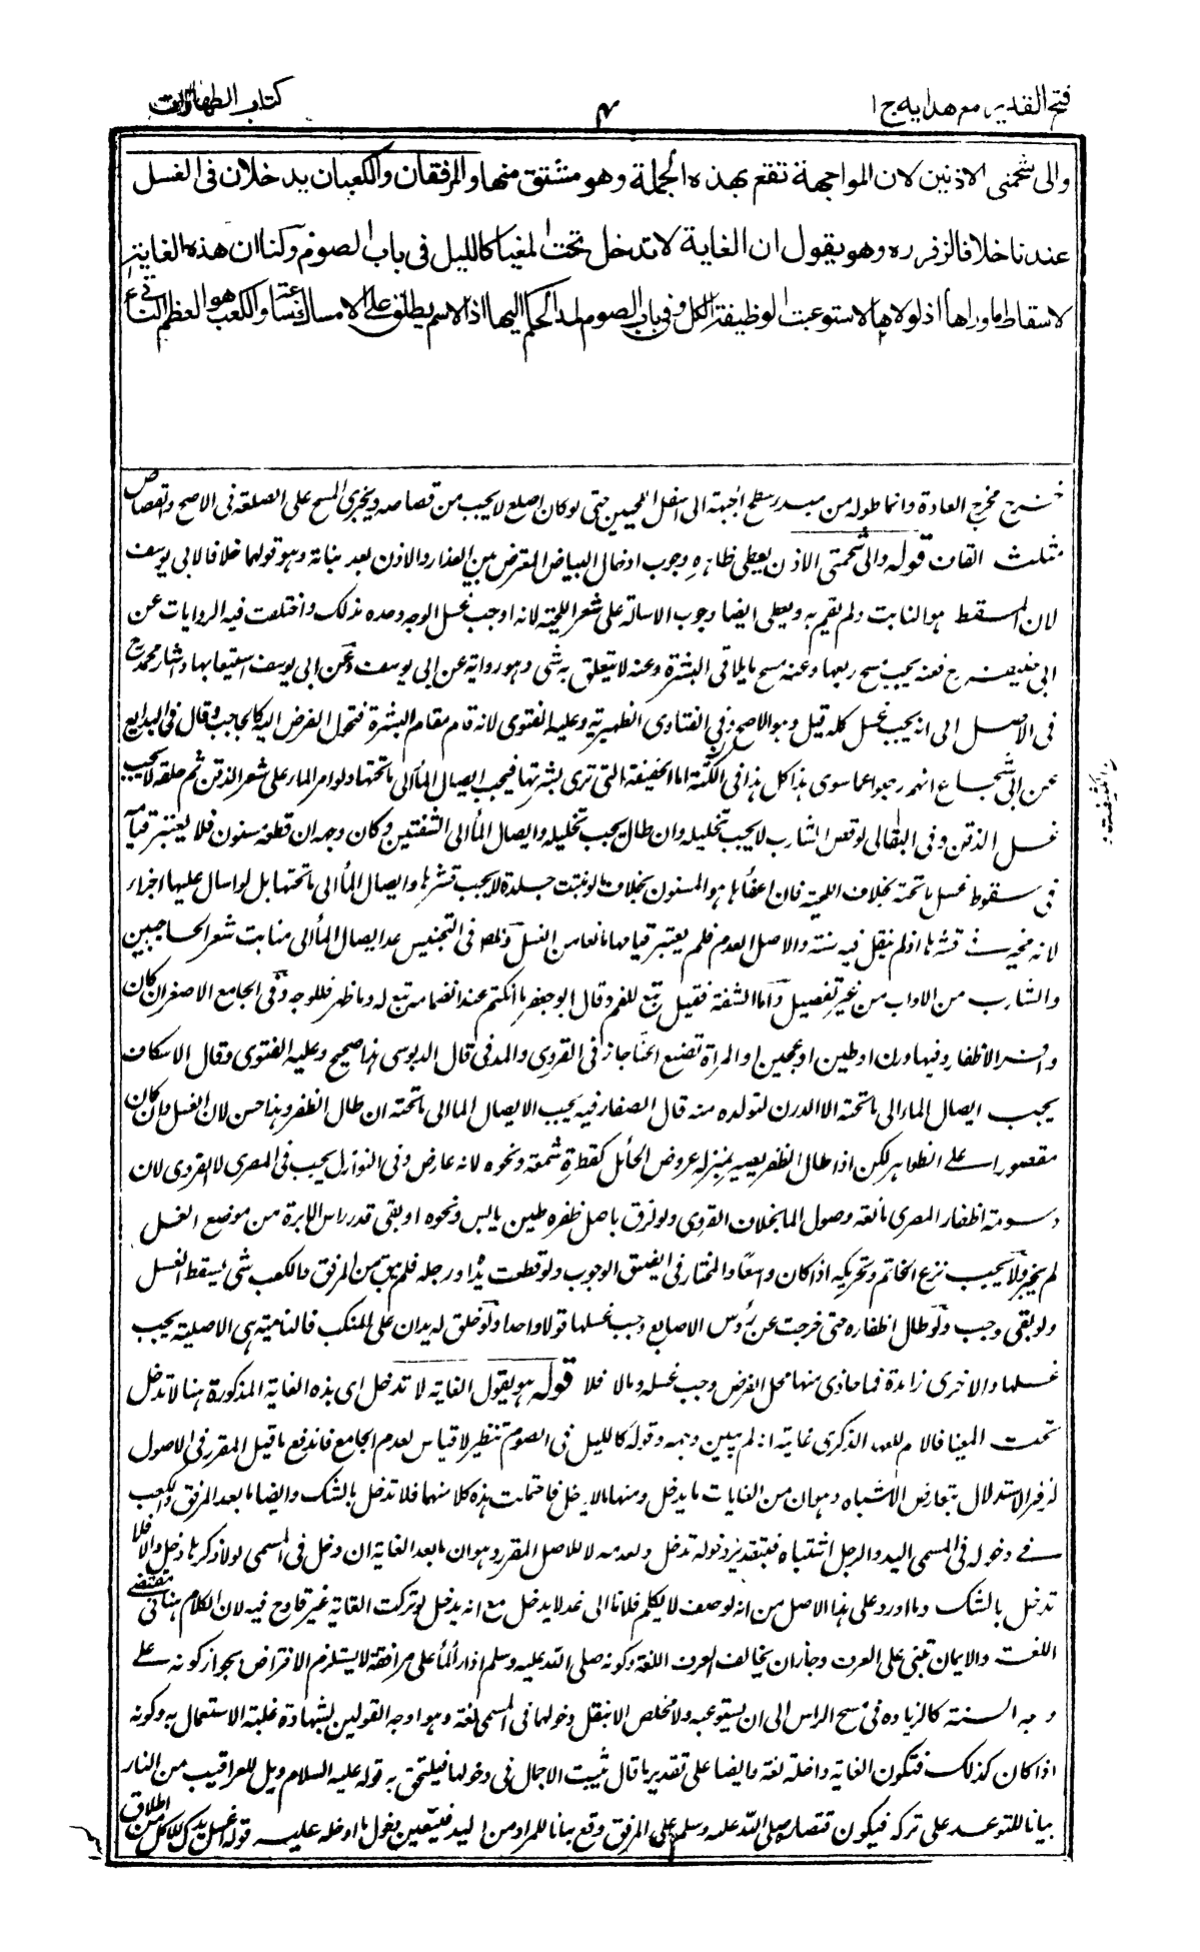 فتح القدير مع هدايه ج ا
٤
كتاب الطهارات
والى شحمتى الاذنين لان المواجهة تقع بهذه الجملة وهو مشتق منها والمرفقان والكعبان يدخلان فى الغسل
عندنا خلافا لزفر ره وهو يقول ان الغاية لا تدخل تحت المغيا كالليل فى باب الصوم ولنا ان هذه الغاية
لاسقاط ماوراها اذ لولاها لاستوعبت الوظيفة الكل وفى باب الصوم لمد الحكم اليها اذ الاسم يطلق على الامساك ساعة والكعب هو العظم الناتى
خرج مخرج العادة وانما طوله من مبدء سطح الجبهة الى اسفل اللحيين حتى لو كان اصلع لا يجب من قصاصه ويجزى المسح على الصلعة فى الاصح والقصاص
مثلث القاف قوله والى شحمتى الاذن يعطى ظاهره وجوب ادخال البياض المعترض بين العذار والاذن بعد نباته وهو قولهما خلافا لابى يوسف
لان المسقط هو النابت ولم يقم به ويعطى ايضا وجوب الاسالة على شعر اللحية لانه اوجب غسل الوجه وحده بذلك واختلفت فيه الروايات عن
ابى حنيفة رح فعنه يجب مسح ربعها وعنه مسح ما يلاقى البشرة وعنه لا يتعلق به شى وهو رواية عن ابى يوسف وعن ابى يوسف استيعابها واشار محمد رح
فى الاصل الى انه يجب غسل كله قيل وهو الاصح وفى الفتاوى الظهيرية وعليه الفتوى لانه قام مقام البشرة فتحول الفرض اليه كالحاجب وقال فى البدايع
عن ابى شجاع انهم رجعوا عما سوى هذا كل هذا فى الكثة اما الخفيفة التى ترى بشرتها فيجب ايصال الماء الى ماتحتها ولو امر الماء على شعر الذقن ثم حلقه لا يجب
غسل الذقن وفى البقالى لو قص الشارب لا يجب تخليله وان طال يجب تخليله وايصال الماء الى الشفتين وكان وجهه ان قطعه مسنون فلا يعتبر قيامه
فى سقوط غسل ماتحته بخلاف اللحية فان اعفاءها هو المسنون بخلاف ما لو نبتت جلدة لا يجب قشرها وايصال الماء الى ماتحتها بل لو اسال عليها اجزاء
لانه مخير فى قشرها اذ لم ينقل فيه سنة والاصل العدم فلم يعتبر قيامها مانعا من الغسل وعد فى التجنيس عد ايصال الماء الى منابت شعر الحاجبين
والشارب من الاداب من غير تفصيل واما الشفة فقيل تبع للفم وقال ابو جعفر ما انكتم عند انضمامه تبع له وما ظهر فللوجه وفى الجامع الاصغر ان كان
وافر الاظفار وفيها درن او طين او عجين او المراة تضع الحنا جاز فى القروى والمدنى قال الدبوسى هذا صحيح وعليه الفتوى وقال الاسكاف
يجب ايصال الماء الى ماتحته الا الدرن لتولده منه قال الصفار فيه يجب الايصال الماء الى ماتحته ان طال الظفر وهذا حسن لان الغسل وان كان
مقصورا على الظواهر لكن اذا طال الظفر يصير بمنزلة عروض الحائل كقطرة شمعة ونحوه لانه عارض وفى النوازل يجب فى المصرى لا القروى لان
دسومة اظفار المصرى مانعة وصول الماء بخلاف القروى ولو لزق باصل ظفره طين يابس ونحوه او بقى قدر راس الابرة من موضع الغسل
لم يجز ولا يجب نزع الخاتم وتحريكه اذا كان واسعا والمختار فى الضيق الوجوب ولو قطعت يده او رجله فلم يبق من المرفق والكعب شى يسقط الغسل
ولو بقى وجب ولو طال اظفاره حتى خرجت عن رؤس الاصابع وجب غسلها قولا واحدا ولو خلق له يدان على المنكب فالتامة هى الاصلية يجب
غسلها والاخرى زايدة فما حاذى منها محل الفرض وجب غسله ومالا فلا قوله هو يقول الغاية لا تدخل اى هذه الغاية المذكورة هنا لا تدخل
تحت المغيا فالام للعهد الذكرى غايته انه لم يبين وجهه وقوله كالليل فى الصوم تنظير لا قياس لعدم الجامع فاندفع ماقيل المقرر فى الاصول
لزفر الاستدلال بتعارض الاشباه وهو ان من الغايات مايدخل ومنها مالا يدخل فاحتملت هذه كلا منهما فلا تدخل بالشك وايضا مابعد المرفق والكعب
فى دخوله فى المسمى اليد والرجل اشتباه فبتقدير دخوله تدخل وبعدمه لا للاصل المقرر وهو ان مابعد الغاية ان دخل فى المسمى لولا ذكرها دخل والا فلا
تدخل بالشك وما اورد على هذا الاصل من انه لو حلف لا يكلم فلانا الى غد لا يدخل مع انه يدخل لو تركت الغاية غير قادح فيه لان الكلام هنا فى مقتضى
اللغة والايمان تبنى على العرف وجاز ان يخالف العرف اللغة وكونه صلى الله عليه وسلم ادار الماء على مرافقه لا يستلزم الافتراض بجواز كونه على
وجه السنة كالزياده فى مسح الراس الى ان يستوعبه ولا مخلص الا بنقل دخولها فى المسمى لغة وهو اوجه القولين بشهادة غلبة الاستعمال به وكونه
اذا كان كذلك فتكون الغاية داخلة لغة وايضا على تقدير ماقال يثبت الاجمال فى دخولها فيلتحق به قوله عليه السلام ويل للعراقيب من النار
بيانا للتوعد على تركه فيكون اقتصاره صلى الله عليه وسلم على المرفق وقع بيانا للمراد من اليد فيتعين دخول ما ادخله عليه قوله اغسل يدك للاكل من اطلاق